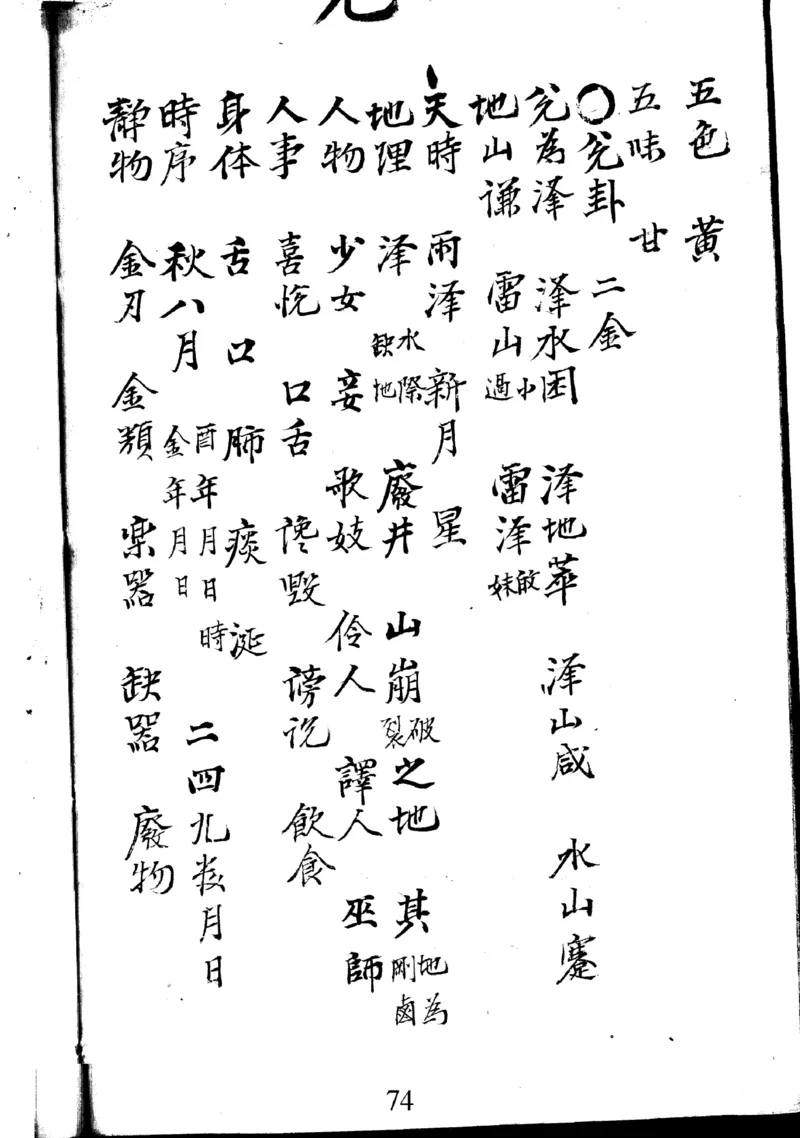 五色 黃
五味 甘
○兊卦 二金
兊為泽 泽水困 泽地萃 泽山咸 水山蹇
地山谦 雷山小過 雷泽歸妹
天時 雨泽 新月 星
地理 泽 水際缺地 廢井 山崩破裂之地 其地為剛鹵
人物 少女 妾 歌妓 伶人 譯人 巫師
人事 喜悦 口舌 谗毁 谤说 飲食
身体 舌 口 肺 痰 涎
時序 秋八月 酉年月日時 金年月日 二四九数月日
靜物 金刃 金類 楽器 缺器 廢物
74